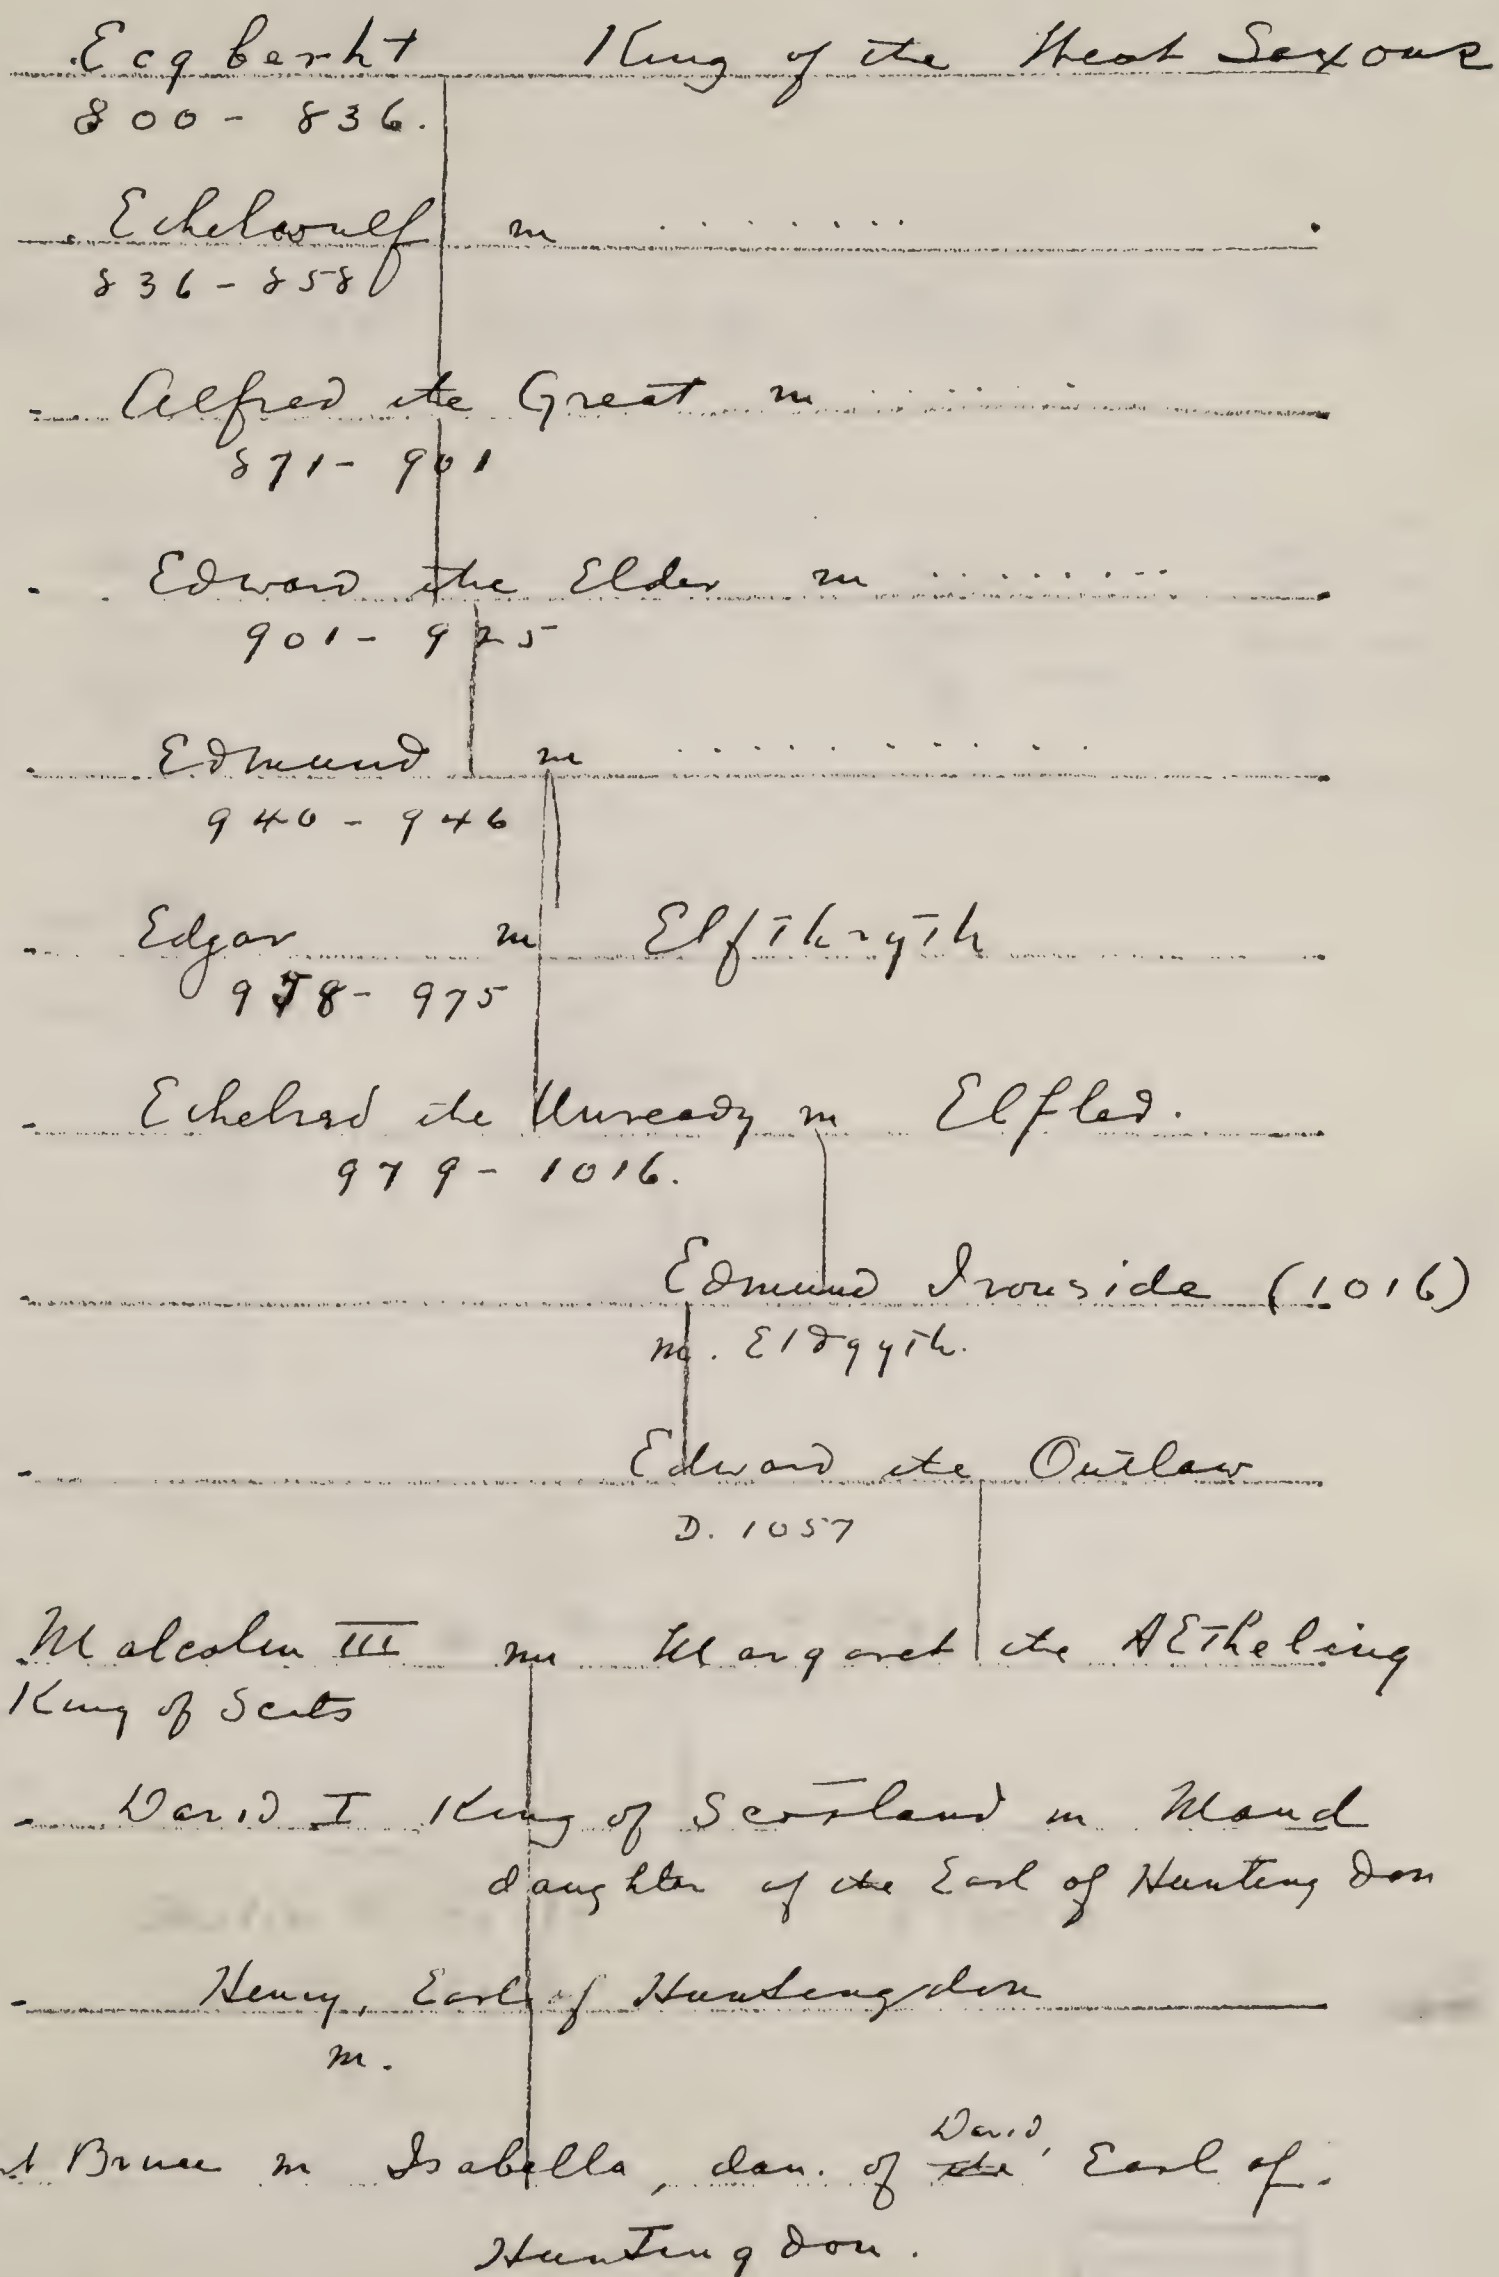 Ecgberht King of the West Saxons
800 - 836.
Ethelwulf m .........
836 - 858
Alfred the Great m .........
871 - 901
Edward the Elder m .........
901 - 925
Edmund m ..........
940 - 946
Edgar m Elfthryth
958 - 975
Ethelred the Unready m Elfled.
979 - 1016.
Edmund Ironside (1016)
m. Eldgyth.
Edward the Outlaw
D. 1057
Malcolm III m Margaret the AEtheling
King of Scots
David I King of Scotland m Maud
daughter of the Earl of Huntingdon
Henry, Earl of Huntingdon
m.
David,
t Bruce m Isabella, dau. of the Earl of
Huntingdon.